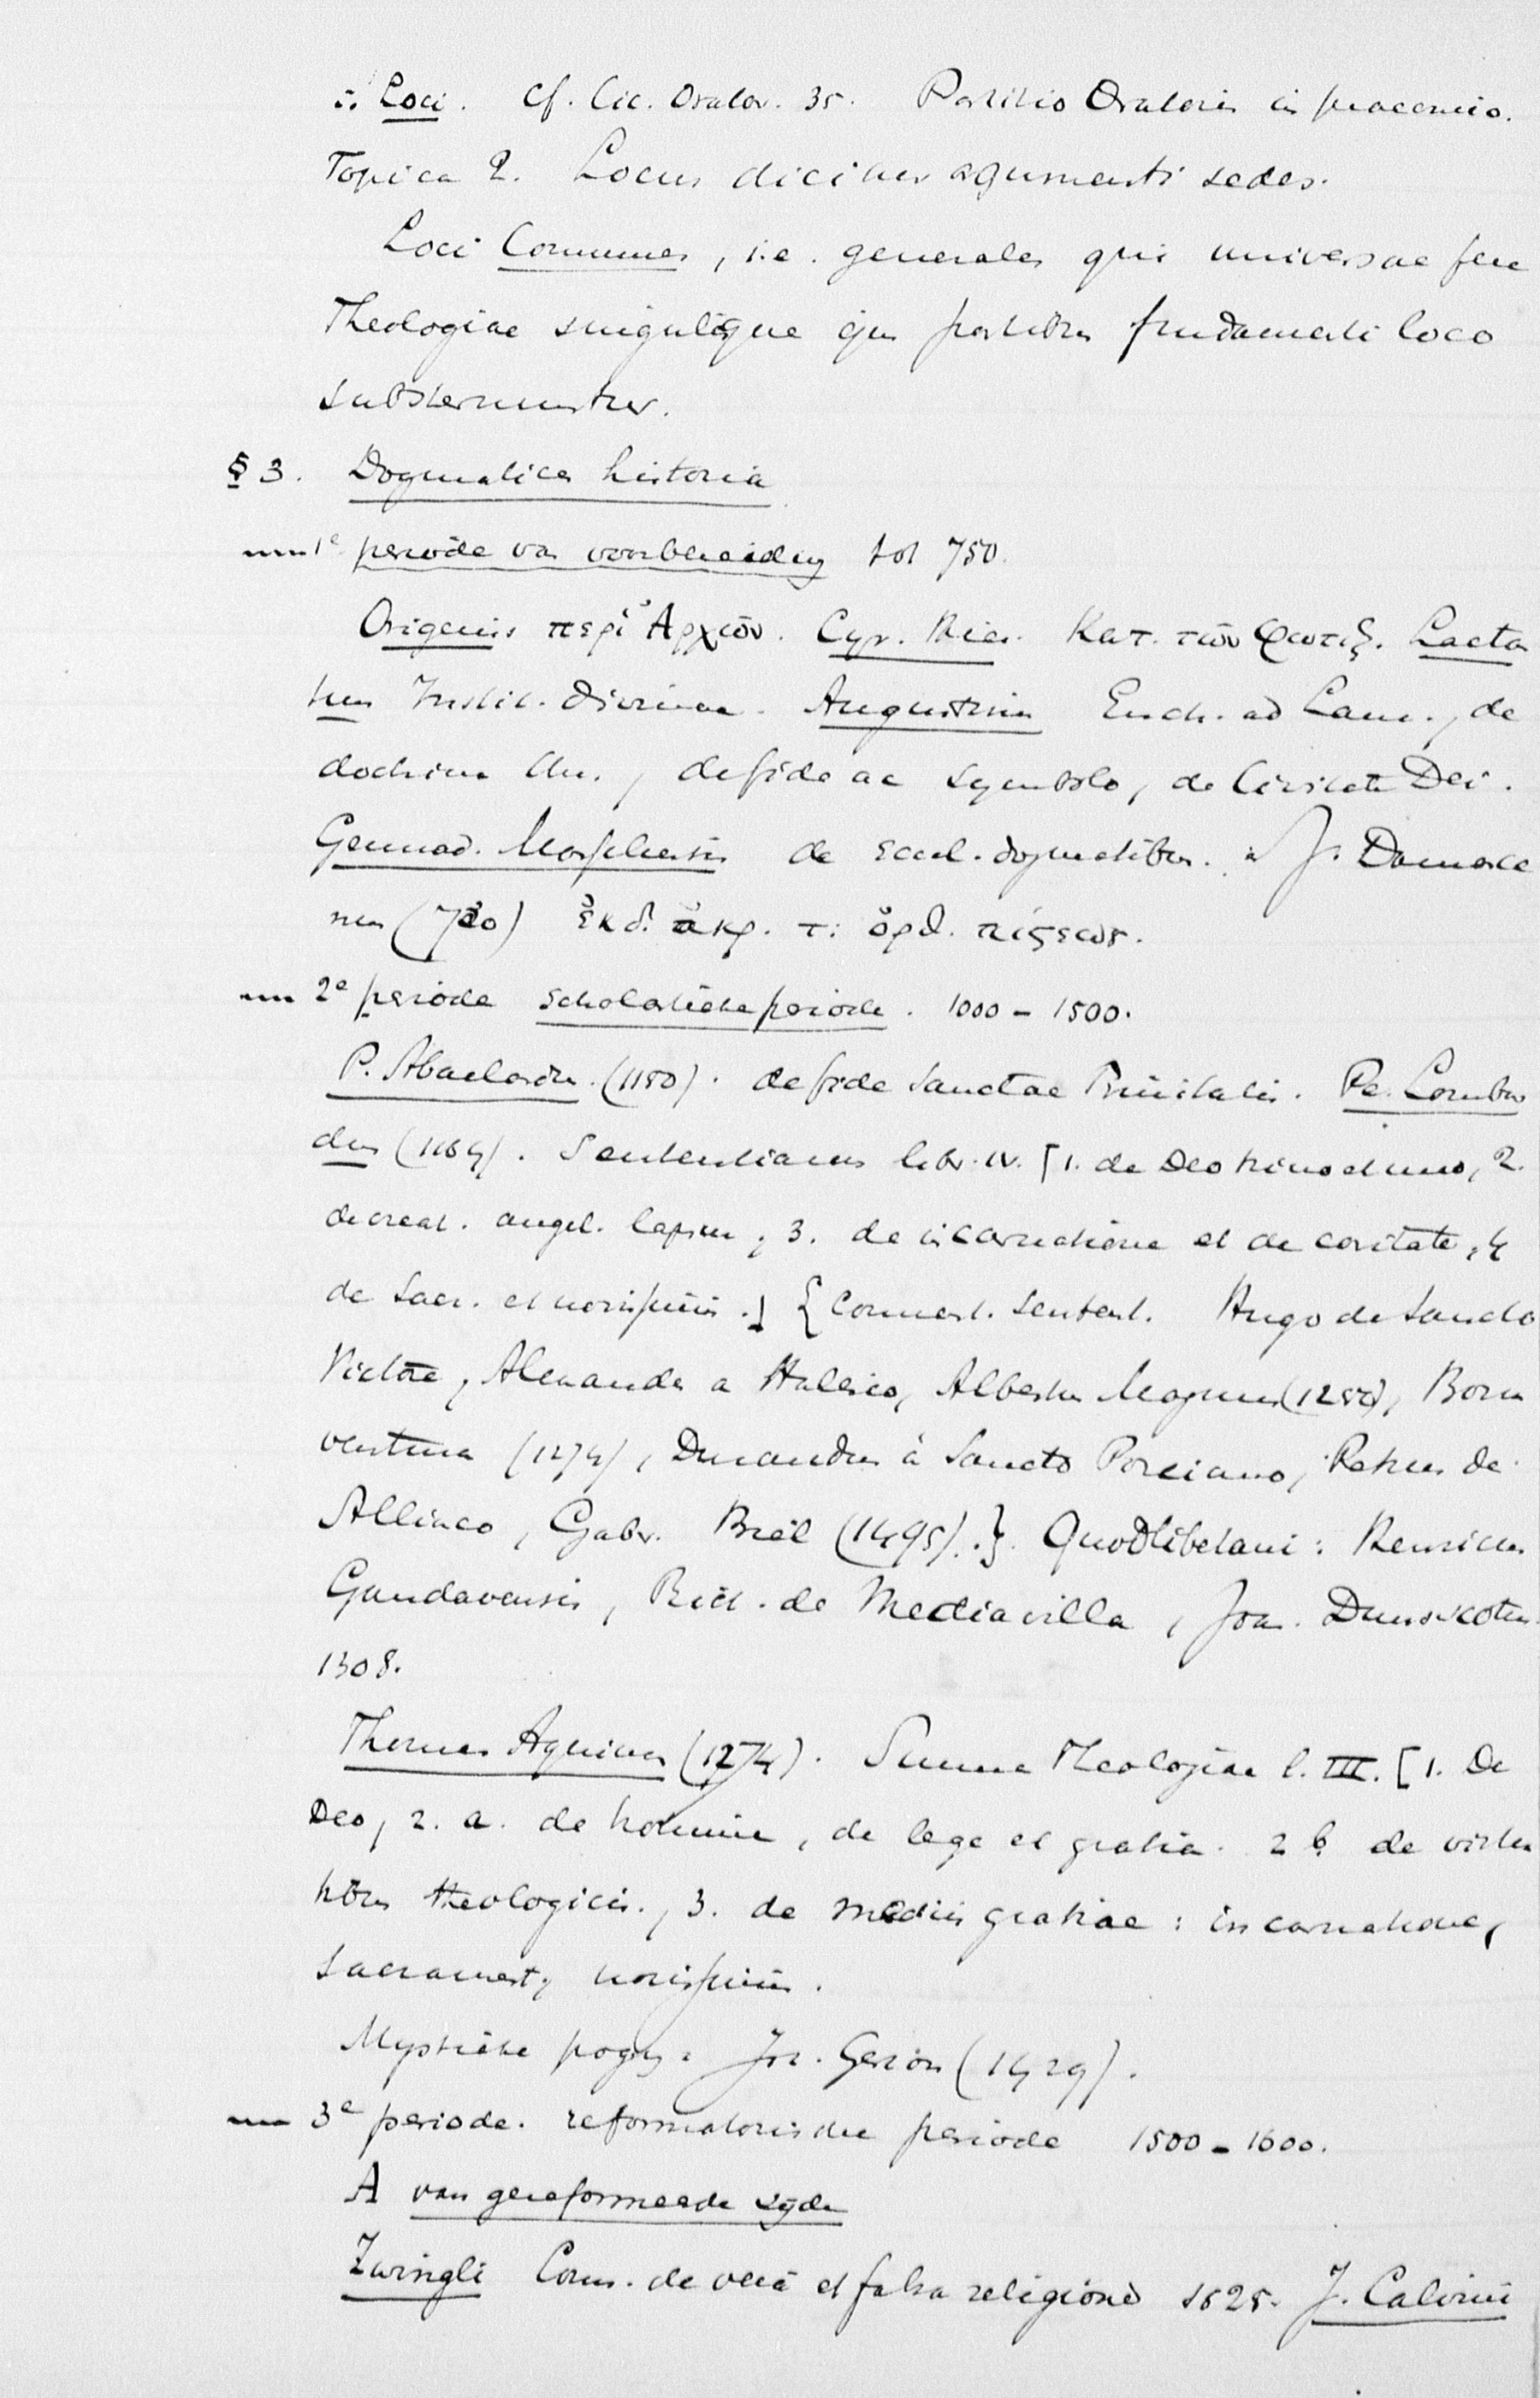 Loci. Cf. Cic. Orator. 35. Partitio Oratoria in prooemio.
Topica 2. Locus dicitur argumenti sedes.
Loci Communes, i.e. generales qui universae fere
Theologiae singulisque ejus partibus fundamenti loco
substernuntur.
§ 3. Dogmatices historia
1e periode van voorbereiding tot 750.
Origenis περὶ Ἀρχῶν. Cyr. Hier. Κατ. τῶν φωτιζ. Lactan
tius Instit. divinae. Augustinus Ench. ad Laur., de
doctrina Chr., de fide ac symbolo, de Civitate Dei.
Gennad. Massiliensis de Eccl. dogmatibus. J. Damasce
nus (730) ἔκδ. ἀκρ. τ. ὀρθ. πίστεως.
2e periode scholastieke periode. 1000 - 1500.
P. Abaelardus. (1150). de fide Sanctae Trinitatis. Pe. Lombar
dus (1164). Sententiarum libr. IV. [1. de Deo trino et uno, 2.
de creat. angel. lapsu, 3. de incarnatione et de caritate, 4
de Sacr. et novissimis.] {Comment. Sentent. Hugo de Sancto
Victore, Alexander a Hallico, Albertus Magnus (1280), Bona
ventura (1274), Durandus à Sancto Porciano, Petrus de
Alliaco, Gabr. Biël (1495).}. Quodlibetani: Henricus
Gandavensis, Rich. de Mediavilla, Joa. Duns Scotus
1308.
Thomas Aquinas (1274). Summa Theologiae l. III. [1. De
Deo, 2. a. de homine, de lege et gratia. 2 b. de virtu
tibus theologicis., 3. de mediis gratiae: incarnatione,
sacrament, novissimis.
Mystieke poging: Joh. Gerson (1429).
3e periode. reformatorische periode 1500 - 1600.
A van gereformeerde zijde
Zwingli Com. de verâ et falsa religione 1525. J. Calvini